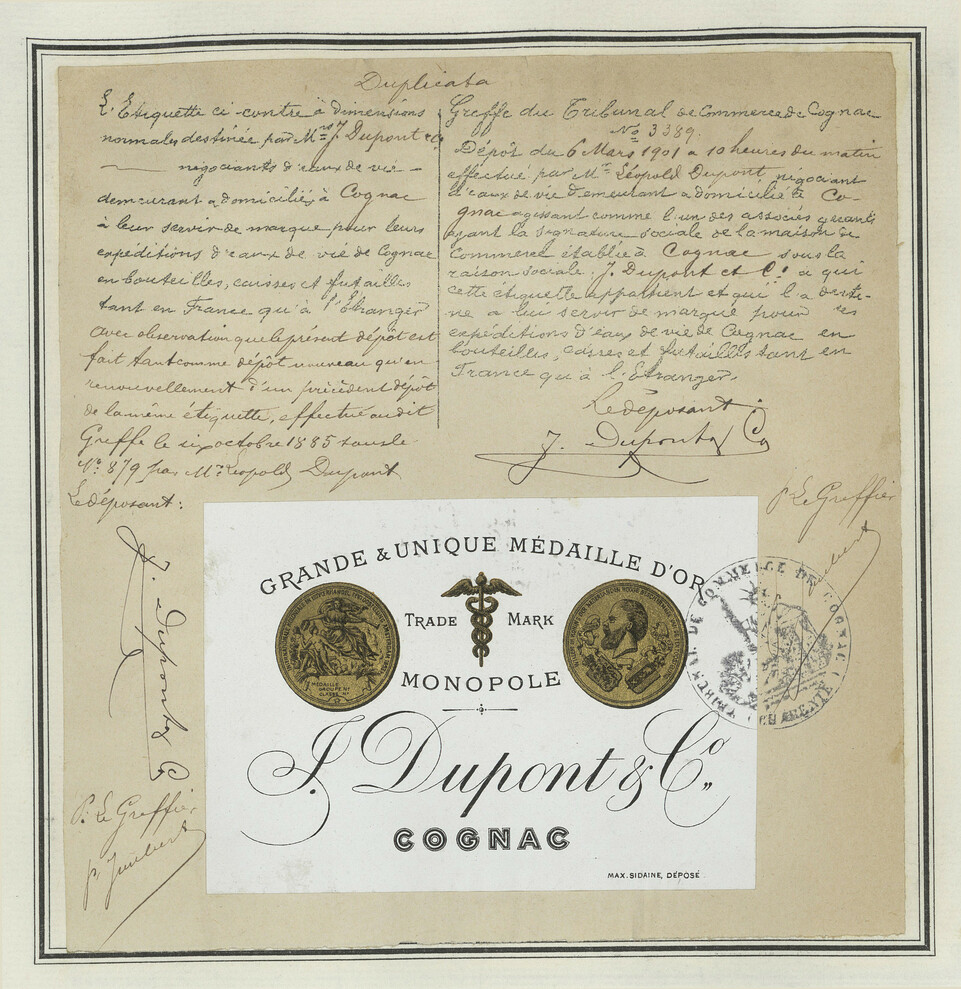 Duplicata
L'Etiquette ci-contre à dimensions
normales destinée par Mrs J. Dupont & Co
negociants d'eaux de vie
demeurant & domiciliés à Cognac
à leur servir de marque pour leurs
expéditions d'eaux de vie de Cognac
en bouteilles, caisses et futailles
tant en France qu'à l'Etranger
avec observation que le présent dépôt est
fait tant comme dépôt nouveau qu'en
renouvellement d'un précédent dépôt
de la même étiquette, effectué au dit
Greffe le six octobre 1885 sous le
No 879 par Mr Léopold Dupont
Le déposant:
J. Dupont & Co
P. Le Greffier
Greffe du Tribunal de Commerce de Cognac
No 3389.
Dépôt du 6 Mars 1901 à 10 heures du matin
effectué par Mr Léopold Dupont, négociant
d'eaux de vie demeurant & domicilié à Co-
gnac agissant comme l'un des associés gérants
ayant la signature sociale de la maison de
commerce établie à Cognac sous la
raison sociale: J. Dupont et Co. à qui
cette étiquette appartient et qui l'a desti-
né à leur servir de marque pour les
expéditions d'eaux de vie de Cognac en
bouteilles, caisses et futailles tant en
France qu'à l'Etranger.
Le déposant
J. Dupont & Co
P. Le Greffier
GRANDE & UNIQUE MÉDAILLE D'OR
TRADE MARK
MONOPOLE
J. Dupont & Co.
COGNAC
MAX. SIDAINE, DÉPOSÉ
TRIBUNAL DE COMMERCE DE COGNAC
CHARENTE